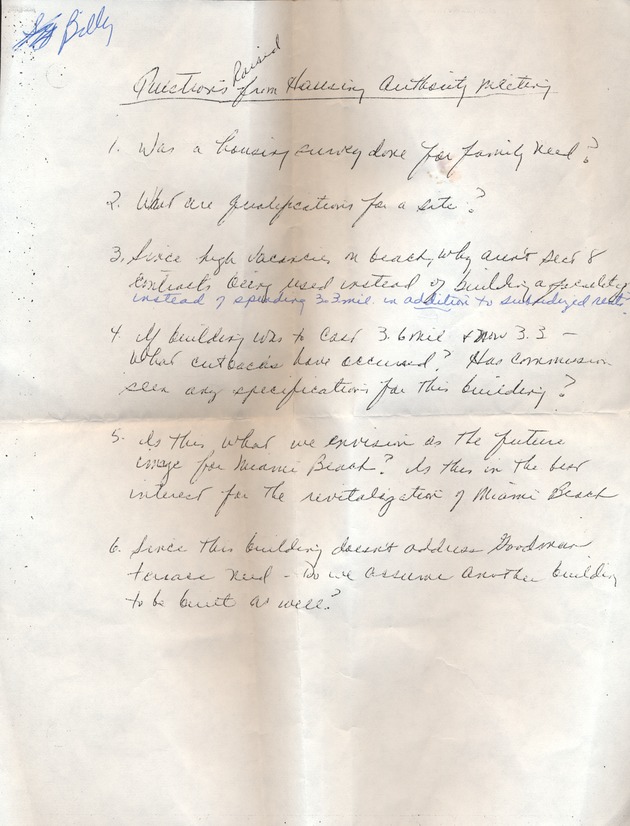 Billy
Questions Raised from Housing Authority Meeting
1. Was a housing survey done for family need?
2. What are qualifications for a site?
3. Since high vacancies on beach, why aren't Sect 8
contracts being used instead of building a facility
instead of spending 3.3 mil. in addition to subsidized rent?
4. If building was to cost 3.6 mil & now 3.3 –
What cutbacks have occured? Has commission
seen any specifications for this building?
5. Is this what we envision as the future
image for Miami Beach? Is this in the best
interest for the revitalization of Miami Beach
6. Since this building doesn't address Goodman
terrace need – Do we assume another building
to be built as well?